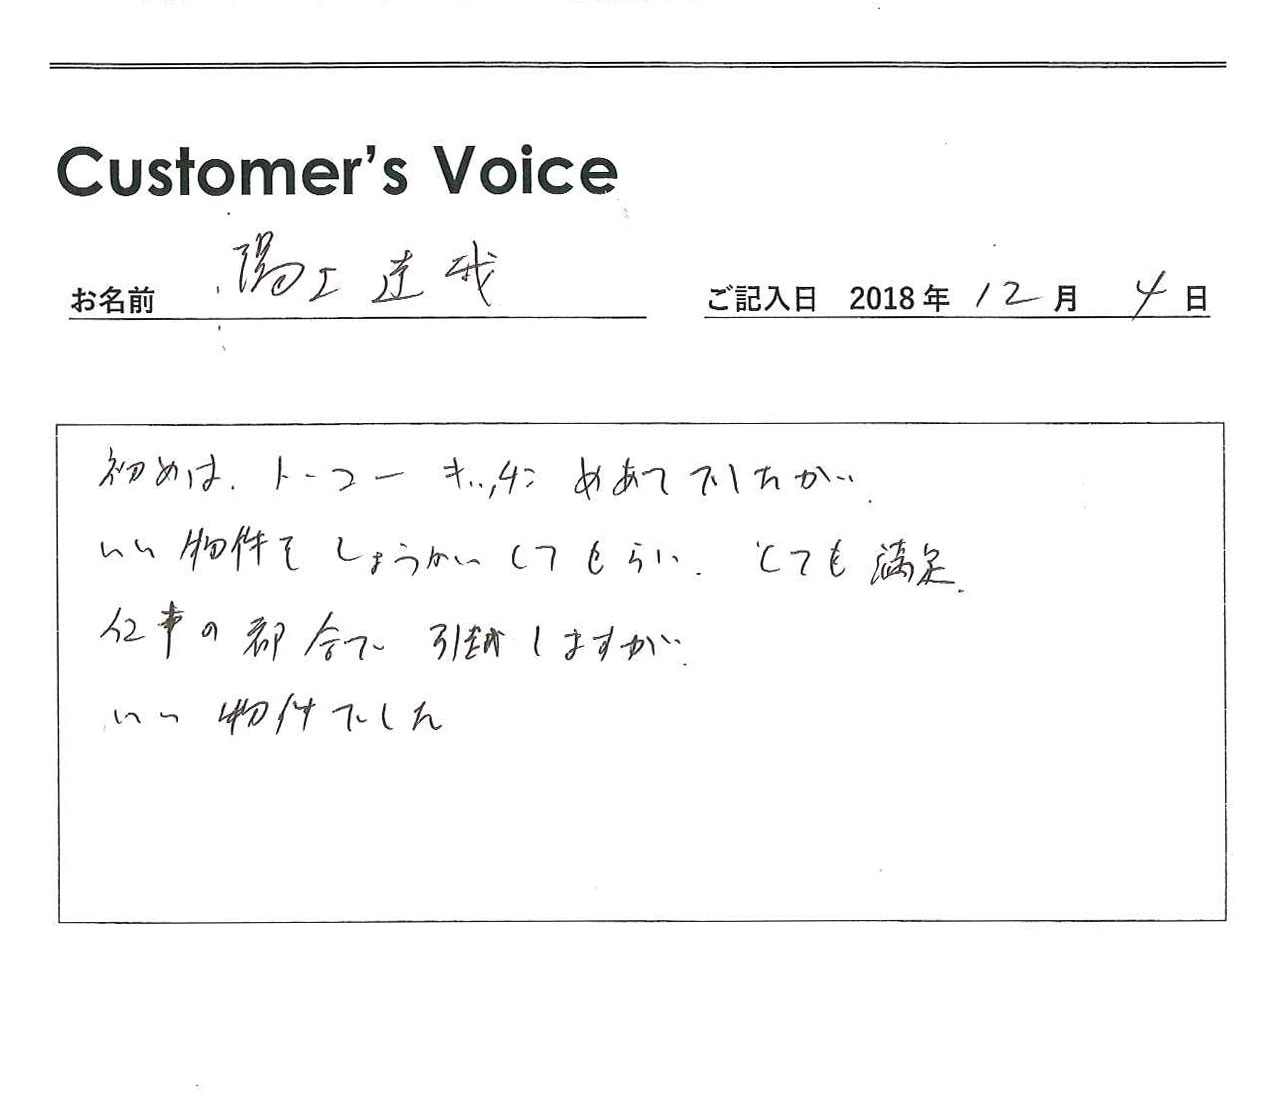 Customer's Voice
お名前 陽上達哉
ご記入日 2018年 12月 4日
初めは、トーコーキッチンめあてでしたが、
いい物件をしょうかいしてもらい、とても満足。
仕事の都合で引越しますが、
いい物件でした